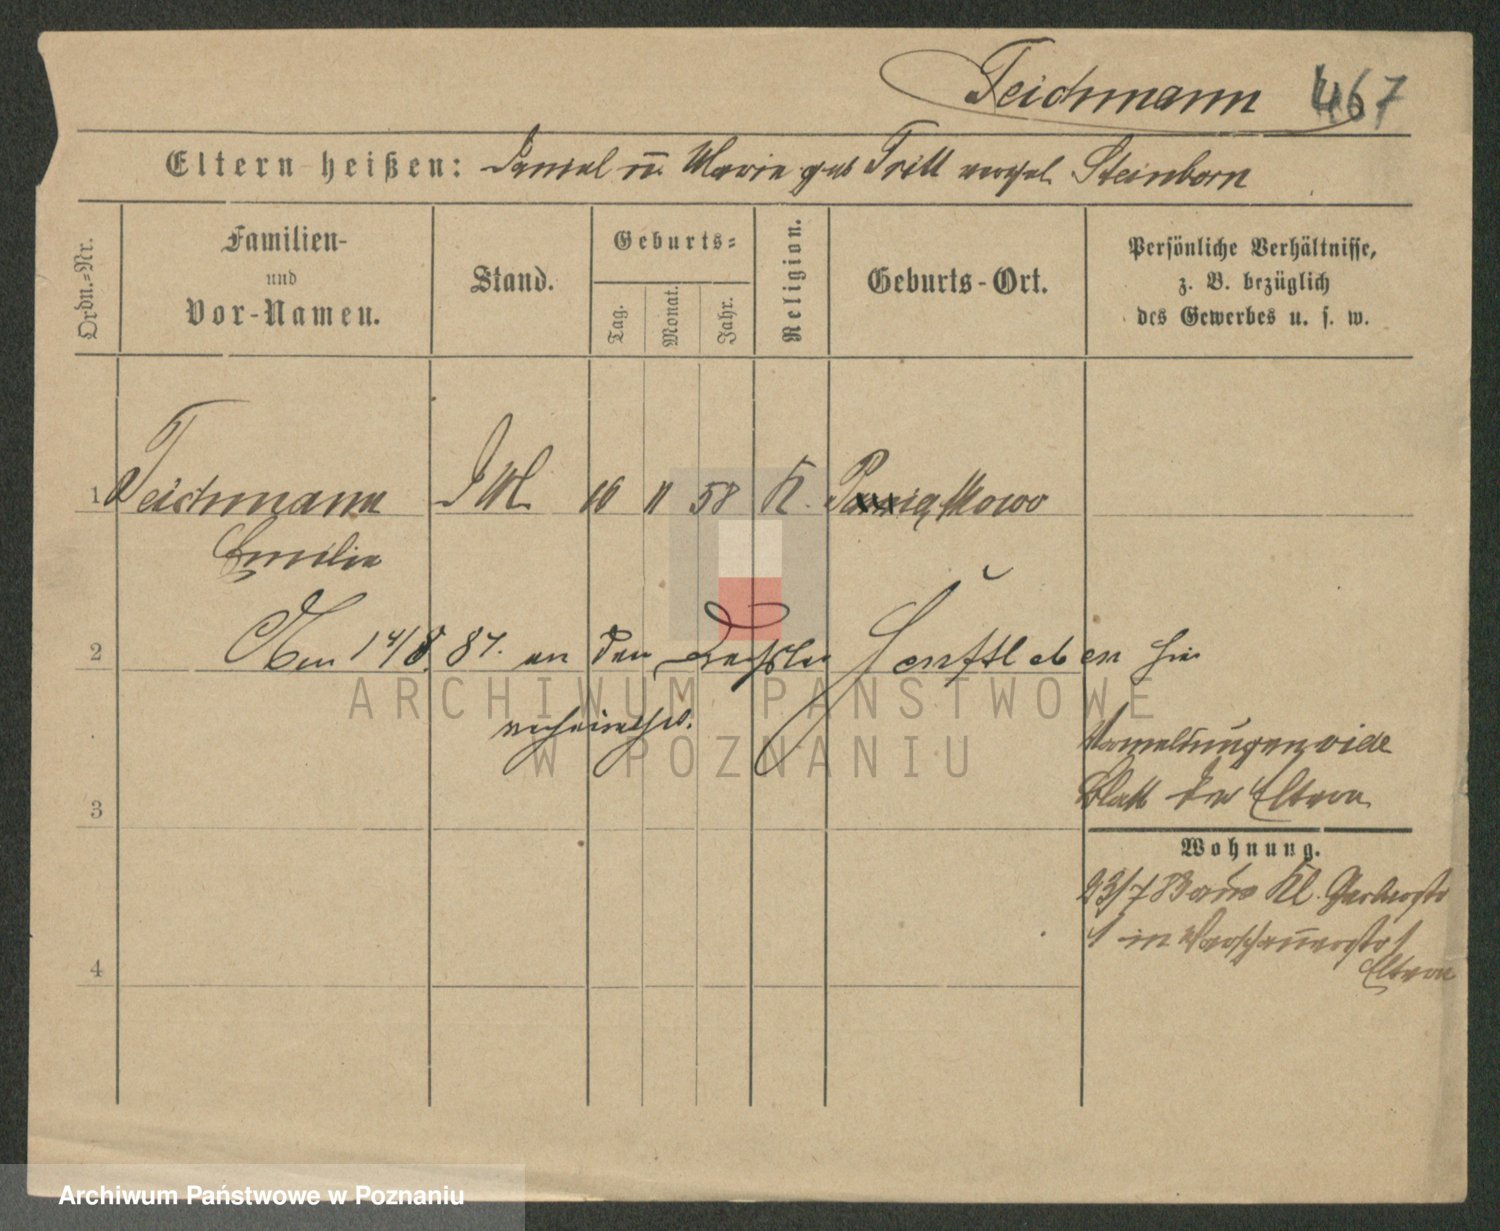 Teichmann 467
Eltern heißen: Daniel u. Marie geb Tritt verehel. Steinborn
Ordn.-Nr.
Familien-
und
Vor-Namen.
Stand.
Geburts-
Tag.
Monat.
Jahr.
Religion.
Geburts-Ort.
Persönliche Verhältnisse,
z. B. bezüglich
des Gewerbes u. s. w.
1 Teichmann 16 11 58 K.
Emilie
2 14/8. 87. an den Senftleben hier
verheirathet.
Vermeldungen vide
Blatt der Eltern
3
Wohnung.
23/7 83 aus Kl. Gerberstr
1 in
Eltern
4
ARCHIWUM PAŃSTWOWE
W POZNANIU
Archiwum Państwowe w Poznaniu